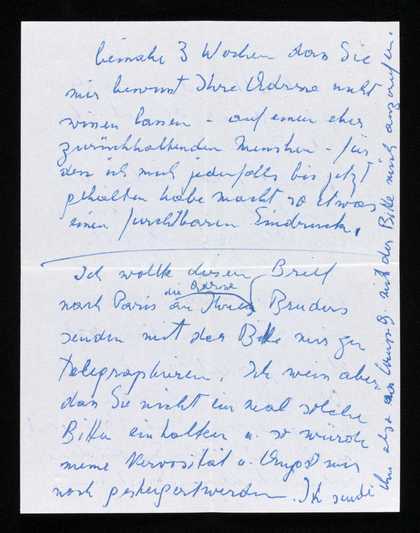 beinahe 3 Wochen dass Sie
mir bewusst Ihre Adresse nicht
wissen lassen - auf einen eher
zurückhaltenden Menschen - für
den ich mich jedenfalls bis jetzt
gehalten habe macht so etwas
einen furchtbaren Eindruck.
Ich wollte diesen Brief
nach Paris an Ihres Bruders
die Adresse
senden mit der Bitte mir zu
telegraphieren. Ich weiss aber
dass Sie nicht einmal solche
Bitten einhalten u. so würde
meine Nervosität u. Angst nur
noch gesteigert werden. Ich sende
ihn also mit der Bitte mich anzurufen.